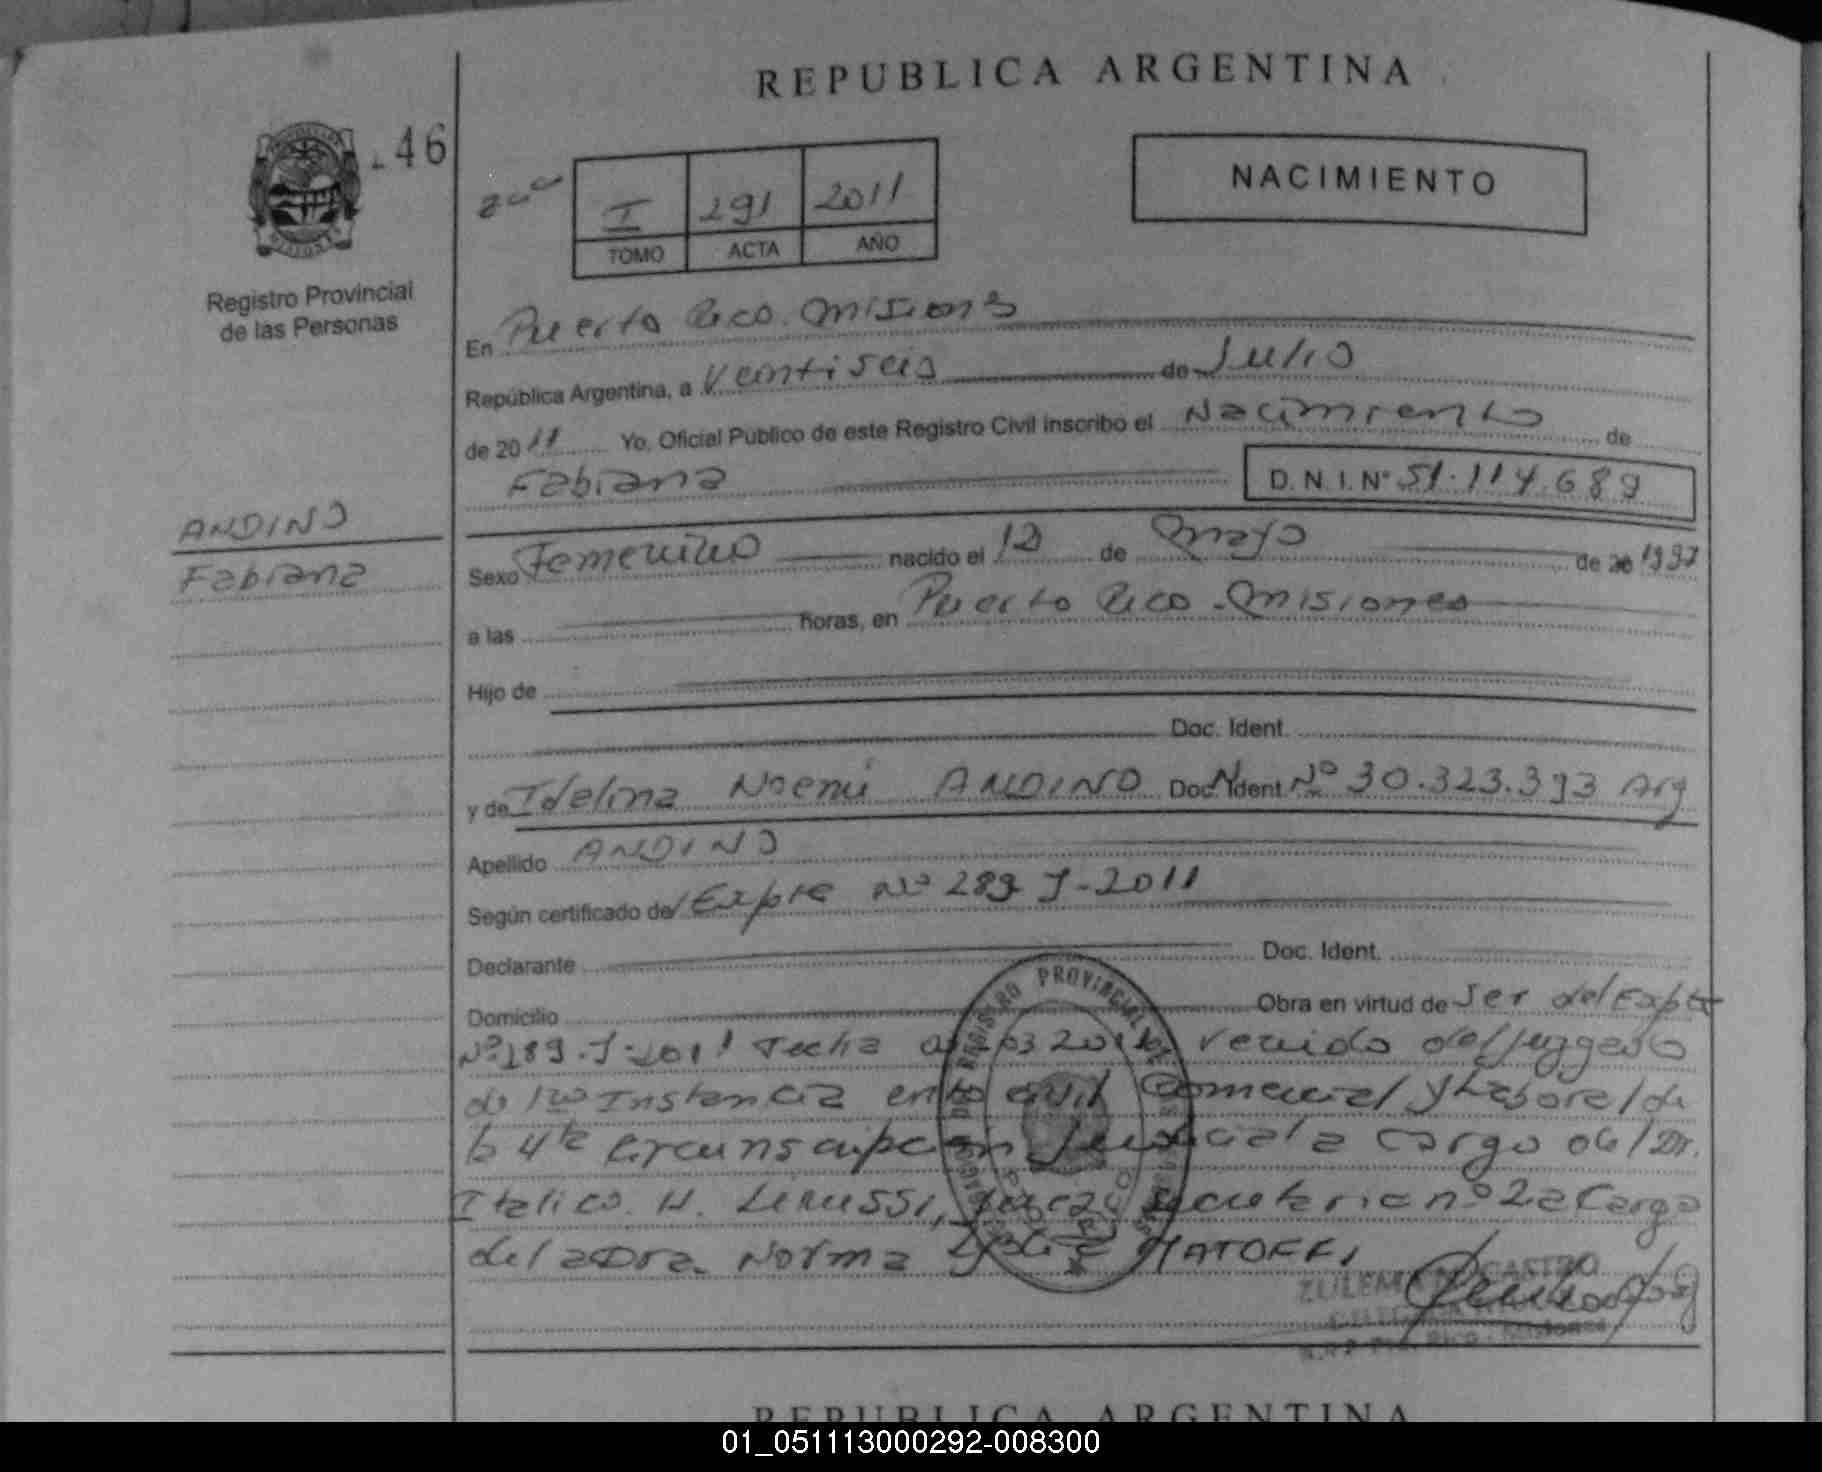 REPUBLICA ARGENTINA
46
NACIMIENTO
I 291 2011
TOMO ACTA AÑO
Registro Provincial
de las Personas
En Puerto Rico. Misiones
República Argentina, a Veintiseis de Julio
de 2011 Yo, Oficial Público de este Registro Civil inscribo el Nacimiento de
Fabiana D.N.I. Nº 51.114.689
ANDINO
Fabiana
Sexo Femenino nacido el 12 de Mayo de 20 1997
a las horas, en Puerto Rico - Misiones
Hijo de
Doc. Ident.
y de Idelina Noemi ANDINO Doc. Ident Nº 30.323.393 Arg
Apellido ANDINO
Según certificado de Expte Nº 289 J-2011
Declarante Doc. Ident.
Domicilio Obra en virtud de Ser del Expte
Nº 289.J-2011 Fecha 03 2011 venido del Juzgado
de 1ra Instancia en lo Civil Comercial y Laboral de
la 4ta Circunscripcion Judicial a cargo del Dr.
Italico. H. Juez, Secretaria nº 2 a Cargo
de la Dra. Norma
REGISTRO PROVINCIAL DE LAS PERSONAS
ZULEMA
REPUBLICA ARGENTINA
01_051113000292-008300